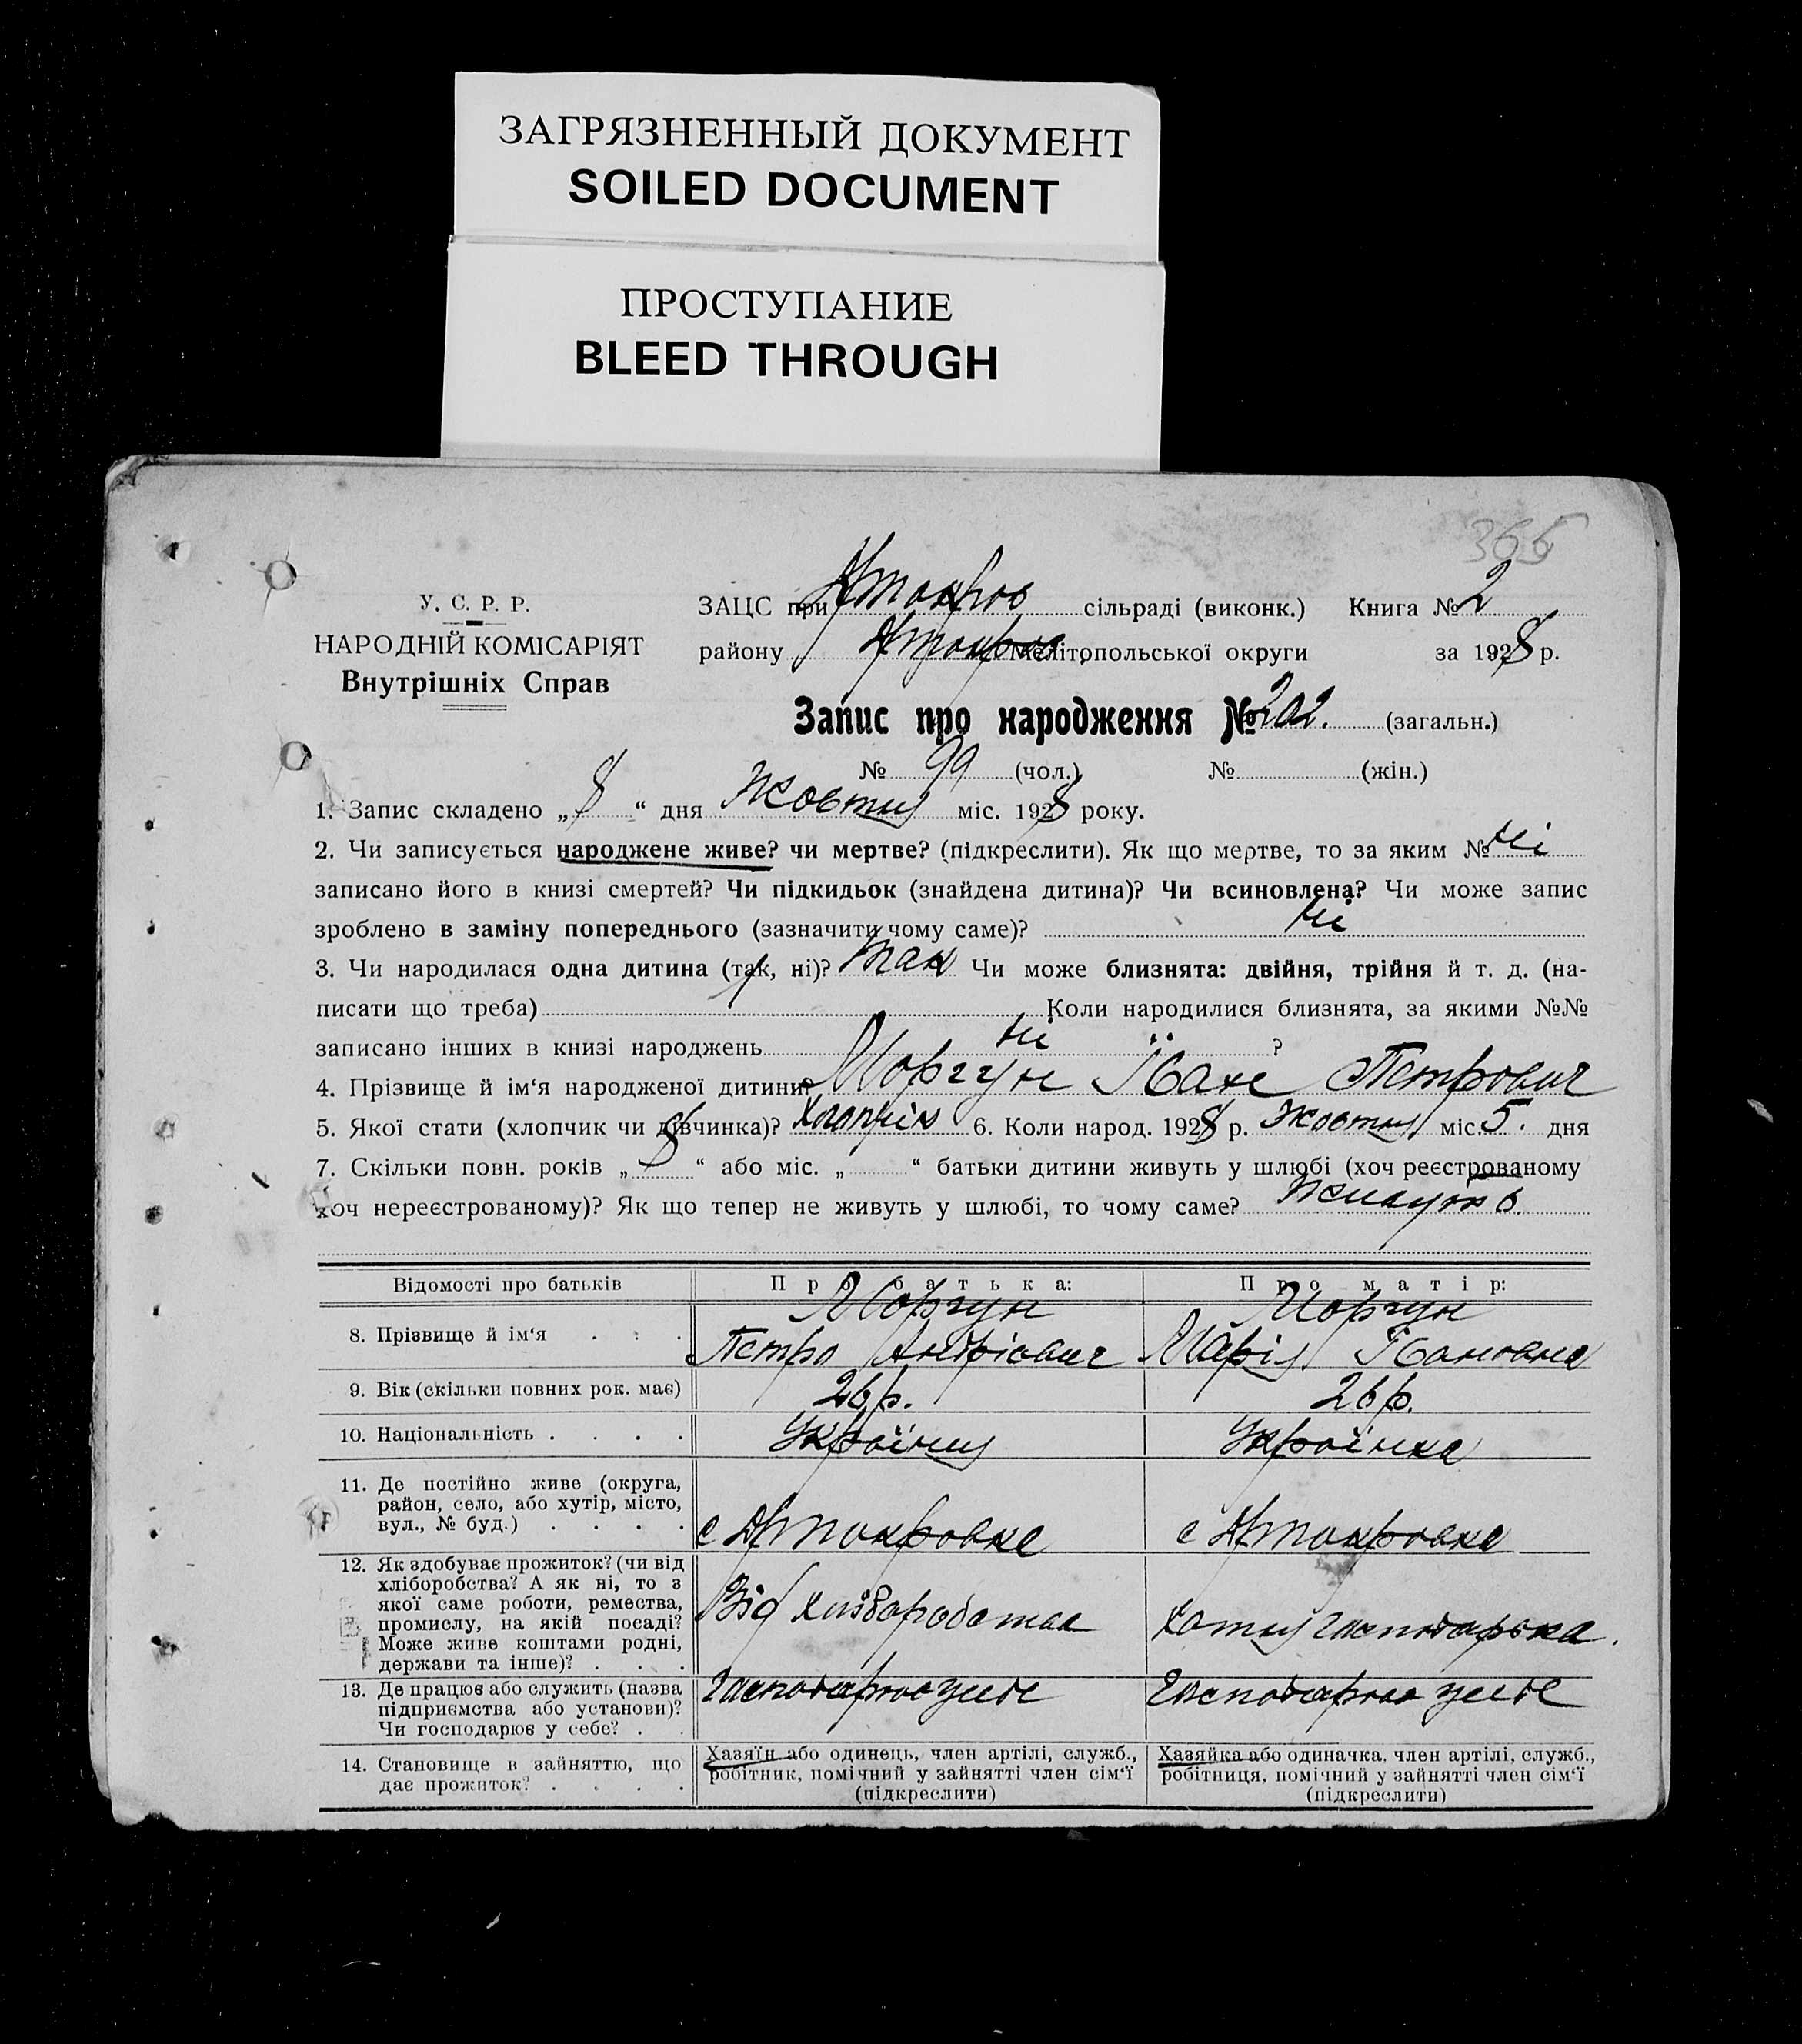 ЗАГРЯЗНЕННЫЙ ДОКУМЕНТ
SOILED DOCUMENT
ПРОСТУПАНИЕ
BLEED THROUGH
366
У. С. Р. Р.
НАРОДНІЙ КОМІСАРІЯТ
Внутрішніх Справ
ЗАЦС при сільраді (виконк.) Книга № 2
району Мелітопольської округи за 1928 р.
Запис про народження № 202. (загальн.)
№ 99 (чол.) № (жін.)
1. Запис складено „ 8 “ дня Жовтня міс. 1928 року.
2. Чи записується народжене живе? чи мертве? (підкреслити). Як що мертве, то за яким № Ні
записано його в книзі смертей? Чи підкидьок (знайдена дитина)? Чи всиновлена? Чи може запис
зроблено в заміну попереднього (зазначити чому саме)? Ні
3. Чи народилася одна дитина (так, ні)? Так Чи може близнята: двійня, трійня й т. д. (на-
писати що треба) Коли народилися близнята, за якими №№
записано інших в книзі народжень Ні ?
4. Прізвище й ім‘я народженої дитини? Моргун Іван Петрович
5. Якої стати (хлопчик чи дівчинка)? Хлопчік 6. Коли народ. 1928 р. Жовтня міс. 5. дня
7. Скільки повн. років „ 8 “ або міс. „ “ батьки дитини живуть у шлюбі (хоч реєстрованому
хоч нереєстрованому)? Як що тепер не живуть у шлюбі, то чому саме?
Відомості про батьків Про батька: Про матір:
8. Прізвище й ім‘я . . . Моргун Петро Андрієвич Моргун Марія Івановна
9. Вік (скільки повних рок. має) 26 р. 26 р.
10. Національність . . . . Українец Українка
11. Де постійно живе (округа,
район, село, або хутір, місто,
вул., № буд.) . . . .
12. Як здобуває прожиток? (чи від
хліборобства? А як ні, то з
якої саме роботи, ремества,
промислу, на якій посаді?
Може живе коштами родні,
держави та інше)? . . .
Від хліборобства
Хатня господарка.
13. Де працює або служить (назва
підприємства або установи)?
Чи господарює у себе? . .
14. Становище в зайняттю, що
дає прожиток? . . . .
Хазяїн або одинець, член артілі, служб.,
робітник, помічний у зайнятті член сім‘ї
(підкреслити)
Хазяйка або одиначка, член артілі, служб.,
робітниця, помічний у зайнятті член сім‘ї
(підкреслити)